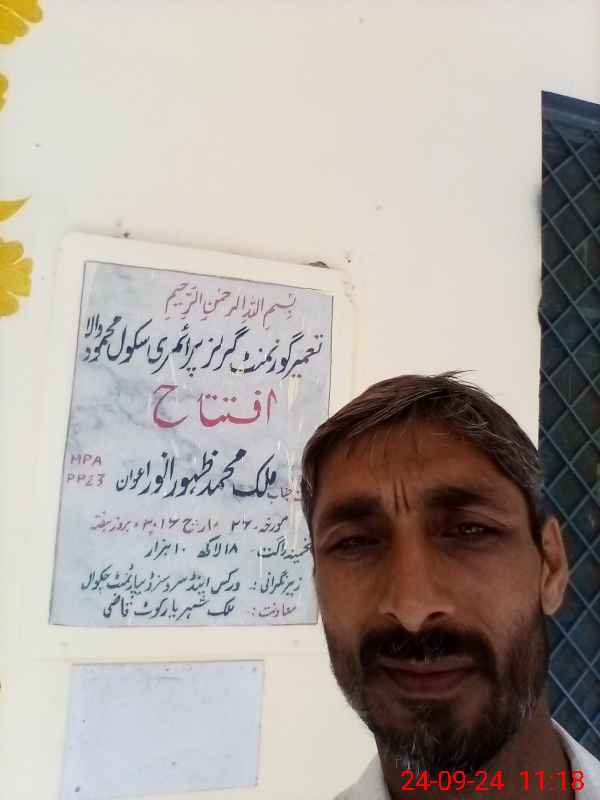 بِسْمِ اللهِ الرَّحْمٰنِ الرَّحِیْمِ
تعمیر گورنمنٹ گرلز پرائمری سکول محمود والا
افتتاح
MPA
PP23
جناب ملک محمد ظہور انور اعوان
مورخہ 26 مارچ 2016ء بروز ہفتہ
تخمینہ لاگت: 18 لاکھ 10 ہزار
زیر نگرانی: ورکس اینڈ سروسز ڈیپارٹمنٹ چکوال
معاونت: ملک شہریار کوٹ قاضی
24-09-24 11:18